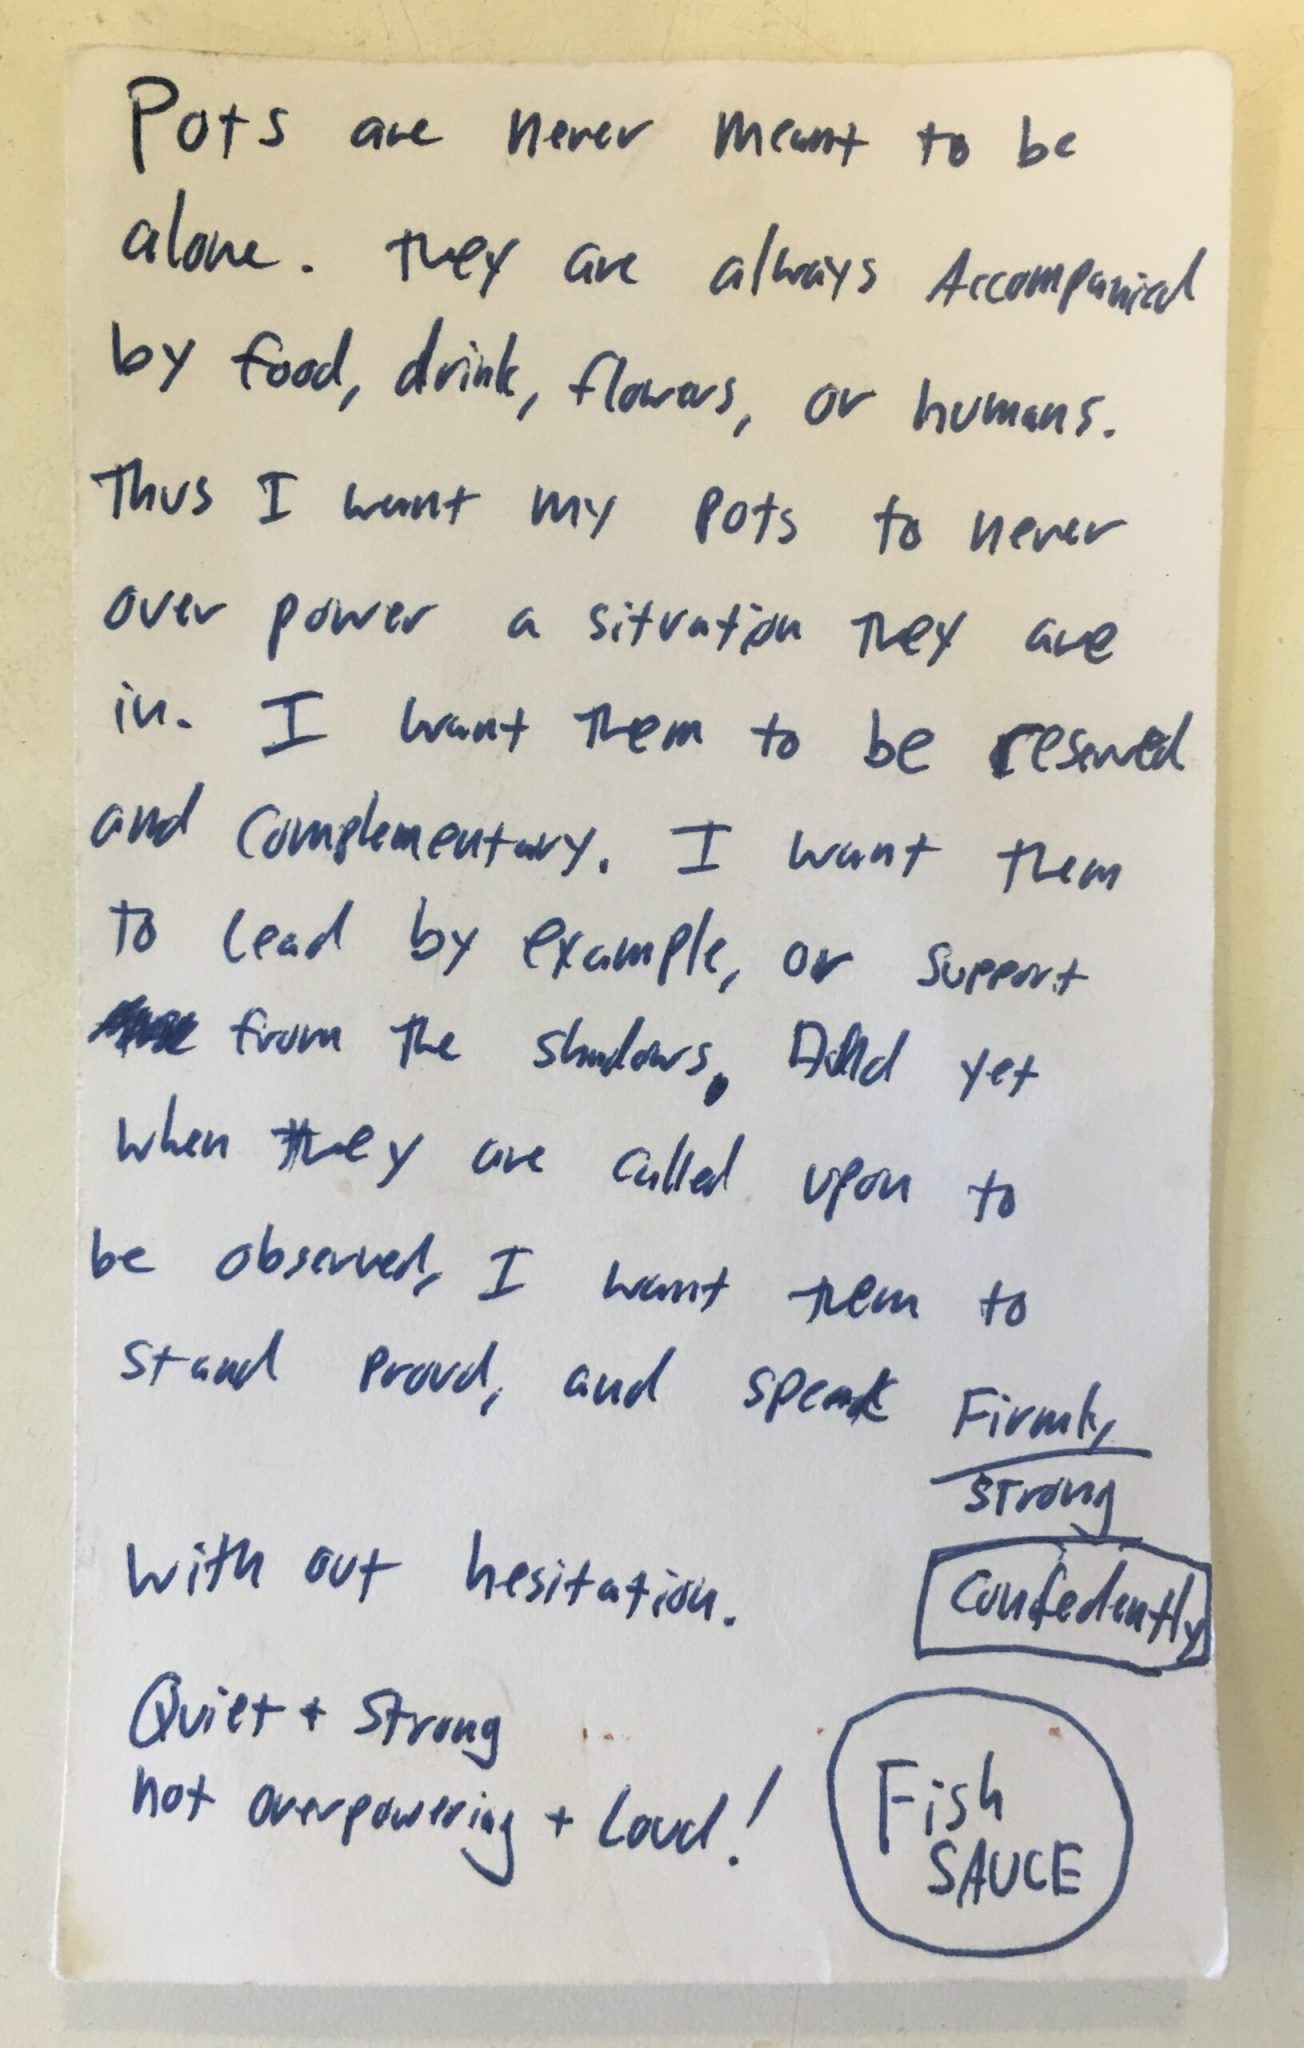 Pots are never meant to be
alone. They are always Accompanied
by food, drink, flowers, or humans.
Thus I want my pots to never
over power a situation they are
in. I want them to be reserved
and complementary. I want them
to lead by example, or support
from the shadows. And yet
when they are called upon to
be observed, I want them to
stand proud, and speak Firmly,
strong
with out hesitation.
confedently
Quiet + strong
not overpowering + Loud!
Fish
SAUCE